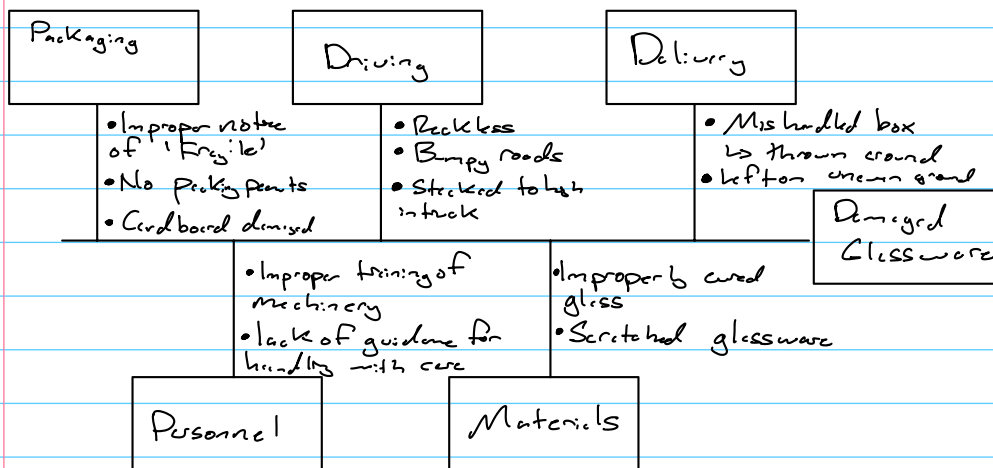 Packaging
Driving
Delivery
• Improper notice
of 'Fragile'
• No packing peanuts
• Cardboard damaged
• Reckless
• Bumpy roads
• Stacked to high
in truck
• Mishandled box
↳ thrown around
• Left on uneven ground
Damaged
Glassware
• Improper training of
machinery
• lack of guidance for
handling with care
• Improperly cured
glass
• Scratched glassware
Personnel
Materials